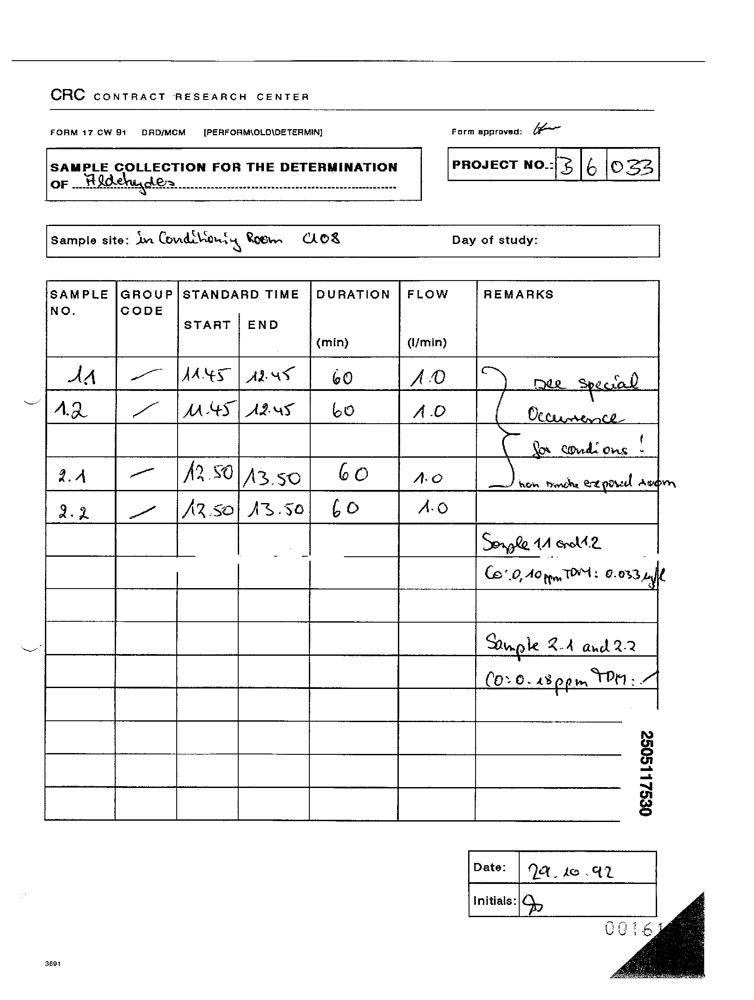 CRC CONTRACT RESEARCH CENTER
FORM 17 CW 91 DRD/MCM [PERFORM\OLD\DETERMIN]
Form approved:
SAMPLE COLLECTION FOR THE DETERMINATION
OF Aldehydes
PROJECT NO.: 3 6 033
Sample site: in Conditioniy Room C108 Day of study:
SAMPLE NO. GROUP CODE STANDARD TIME START END DURATION (min) FLOW (l/min) REMARKS
1.1 — 11.45 12.45 60 1.0 see special
1.2 — 11.45 12.45 60 1.0 Occurrence
for condions !
2.1 — 12.50 13.50 60 1.0 non smoke exposed room
2.2 — 12.50 13.50 60 1.0
Sample 1.1 and 1.2
CO: 0,10 ppm TPM: 0.033 µg/l
Sample 2.1 and 2.2
CO: 0.18 ppm TPM: —
2505117530
Date: 29.10.92
Initials:
00161
3691